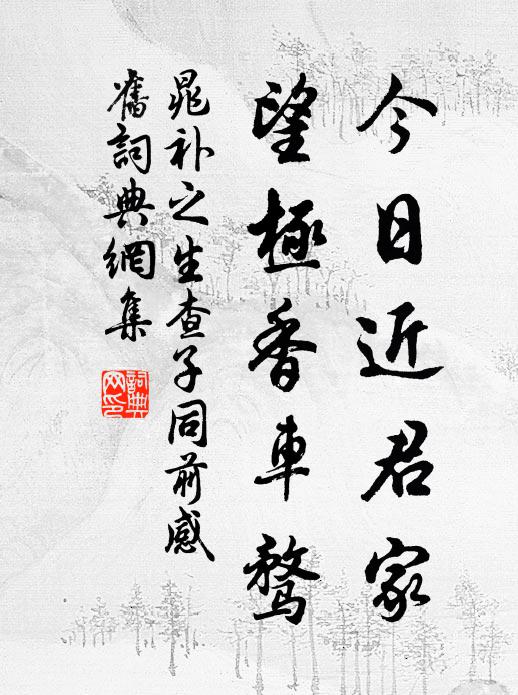 今日近君家
望極香車騖
晁补之生查子同前感
舊詞典網集
詞典
网印